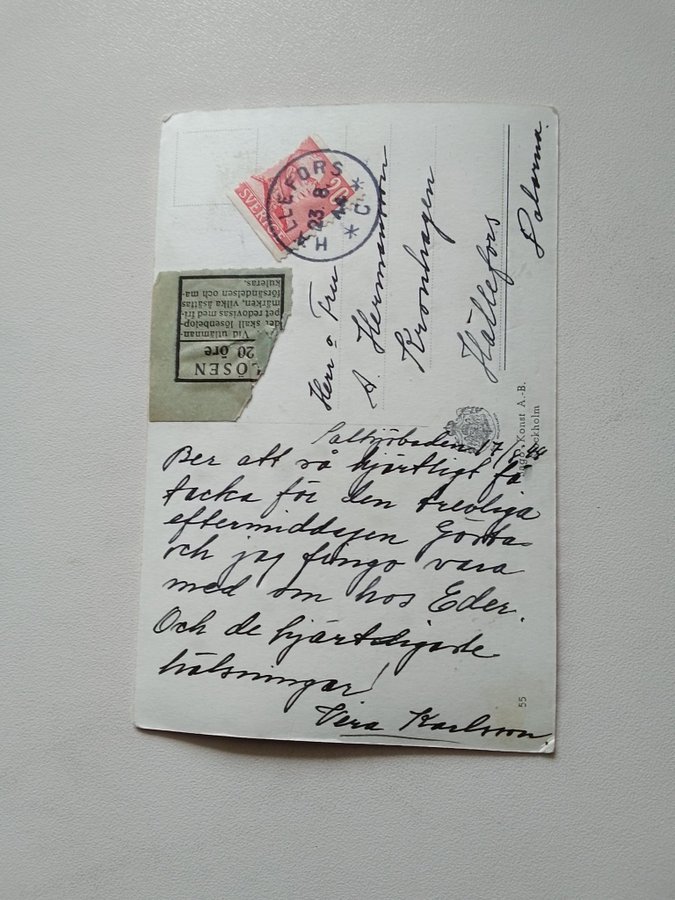 SVERIGE
20
HÄLLEFORS
23. 8
44
* C *
LÖSEN
20 öre
Vid utlämnan
det skall lösenbelop-
pet redovisas med fri-
märken, vilka åsättas
försändelsen och ma-
kuleras.
Herr o Fru
A. Hermansson
Kronhagen
Hällefors
Dalarna.
Konst A.-B.
Saltsjöbaden 17/8 44
Ber att så hjärtligt få
tacka för den trevliga
eftermiddagen Gösta
och jag fingo vara
med om hos Eder.
Och de hjärtligaste
hälsningar!
Vera Karlsson
55